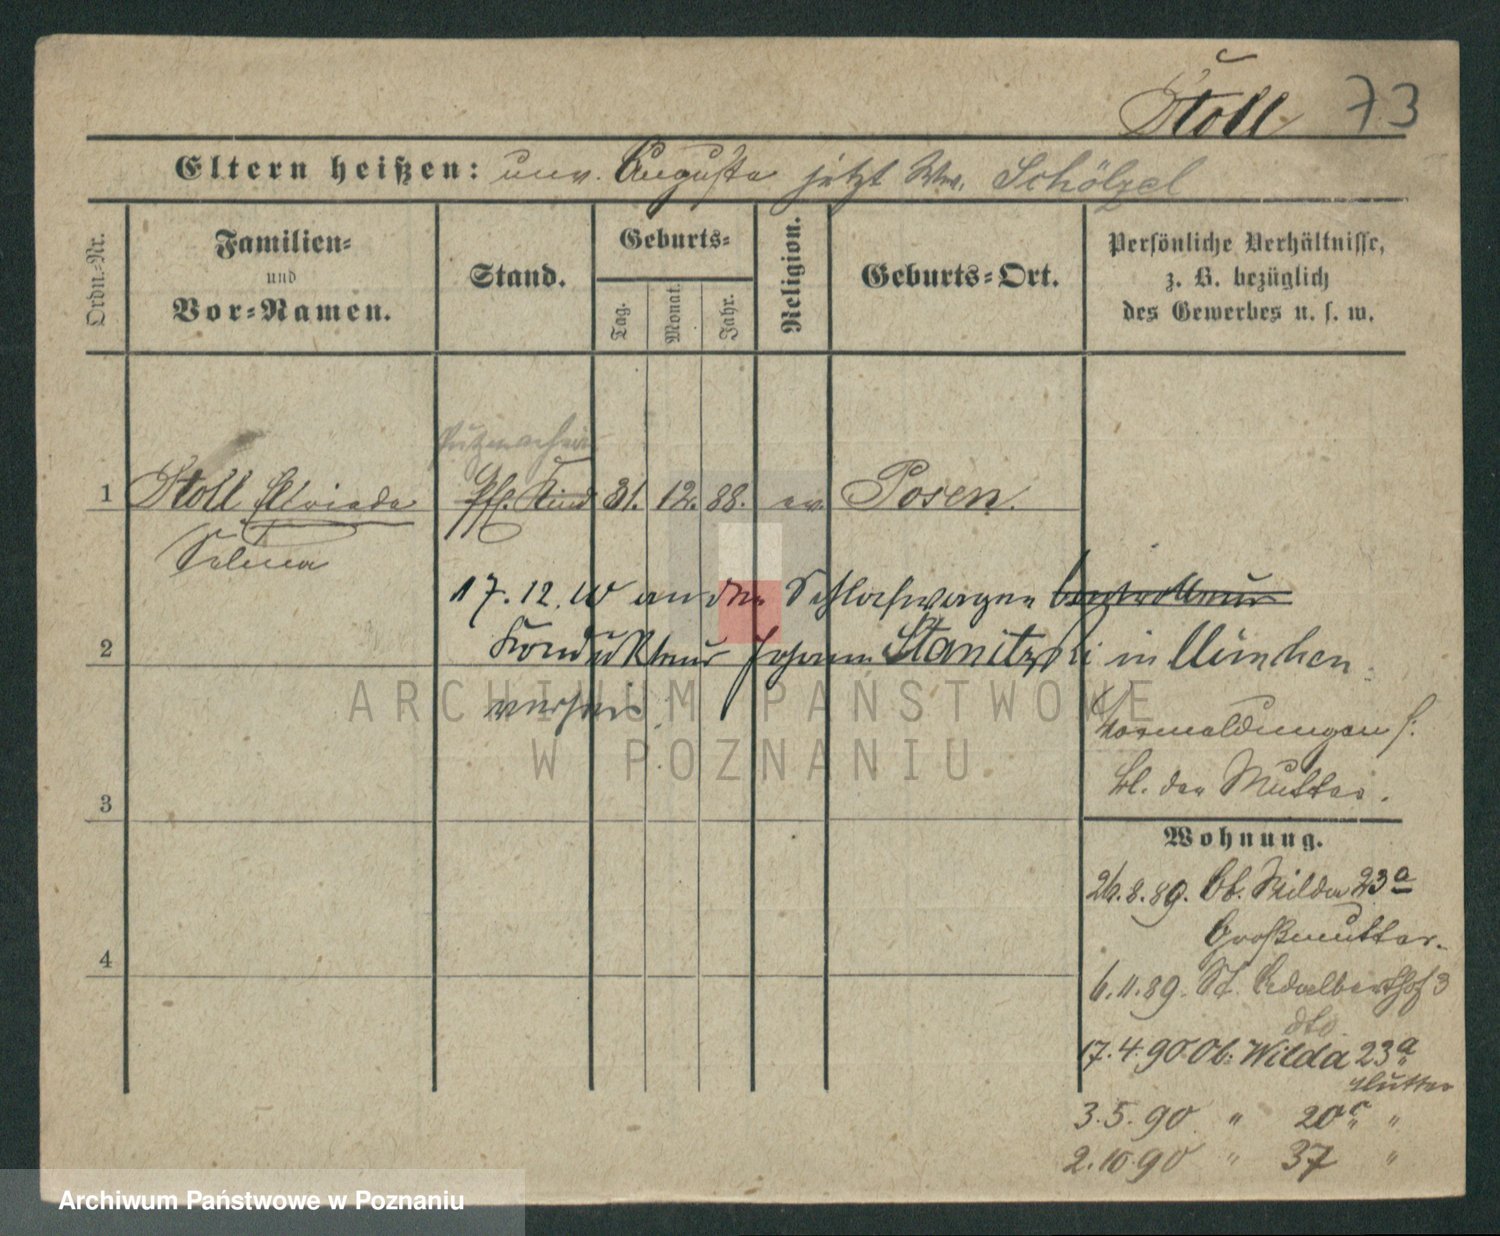 Stoll 73
Eltern heißen: unv. Auguste jetzt Ww. Schölzel
Ordn.-Nr.
Familien-
und
Vor-Namen.
Stand.
Geburts-
Tag.
Monat.
Jahr.
Religion.
Geburts-Ort.
Persönliche Verhältnisse,
z. B. bezüglich
des Gewerbes u. s. w.
Putzmacherin
1 Stoll Elvieda Pfl. Kind 31. 12. 88. ev. Posen.
Selma
17.12.10 an den Schlafwagen Controlleur
2 Kondukteur Johann Stanitzki in München
verheir.
Vormeldungen s.
bl. der Mutter.
3
Wohnung.
26.8.89. Ob. Wilda 23a
Großmutter.
4
6.11.89. St. Adalberthof 3
dto.
17.4.90 Ob. Wilda 23a
Mutter
3.5.90 " 20c "
2.10.90 " 37 "
ARCHIWUM PAŃSTWOWE
W POZNANIU
Archiwum Państwowe w Poznaniu